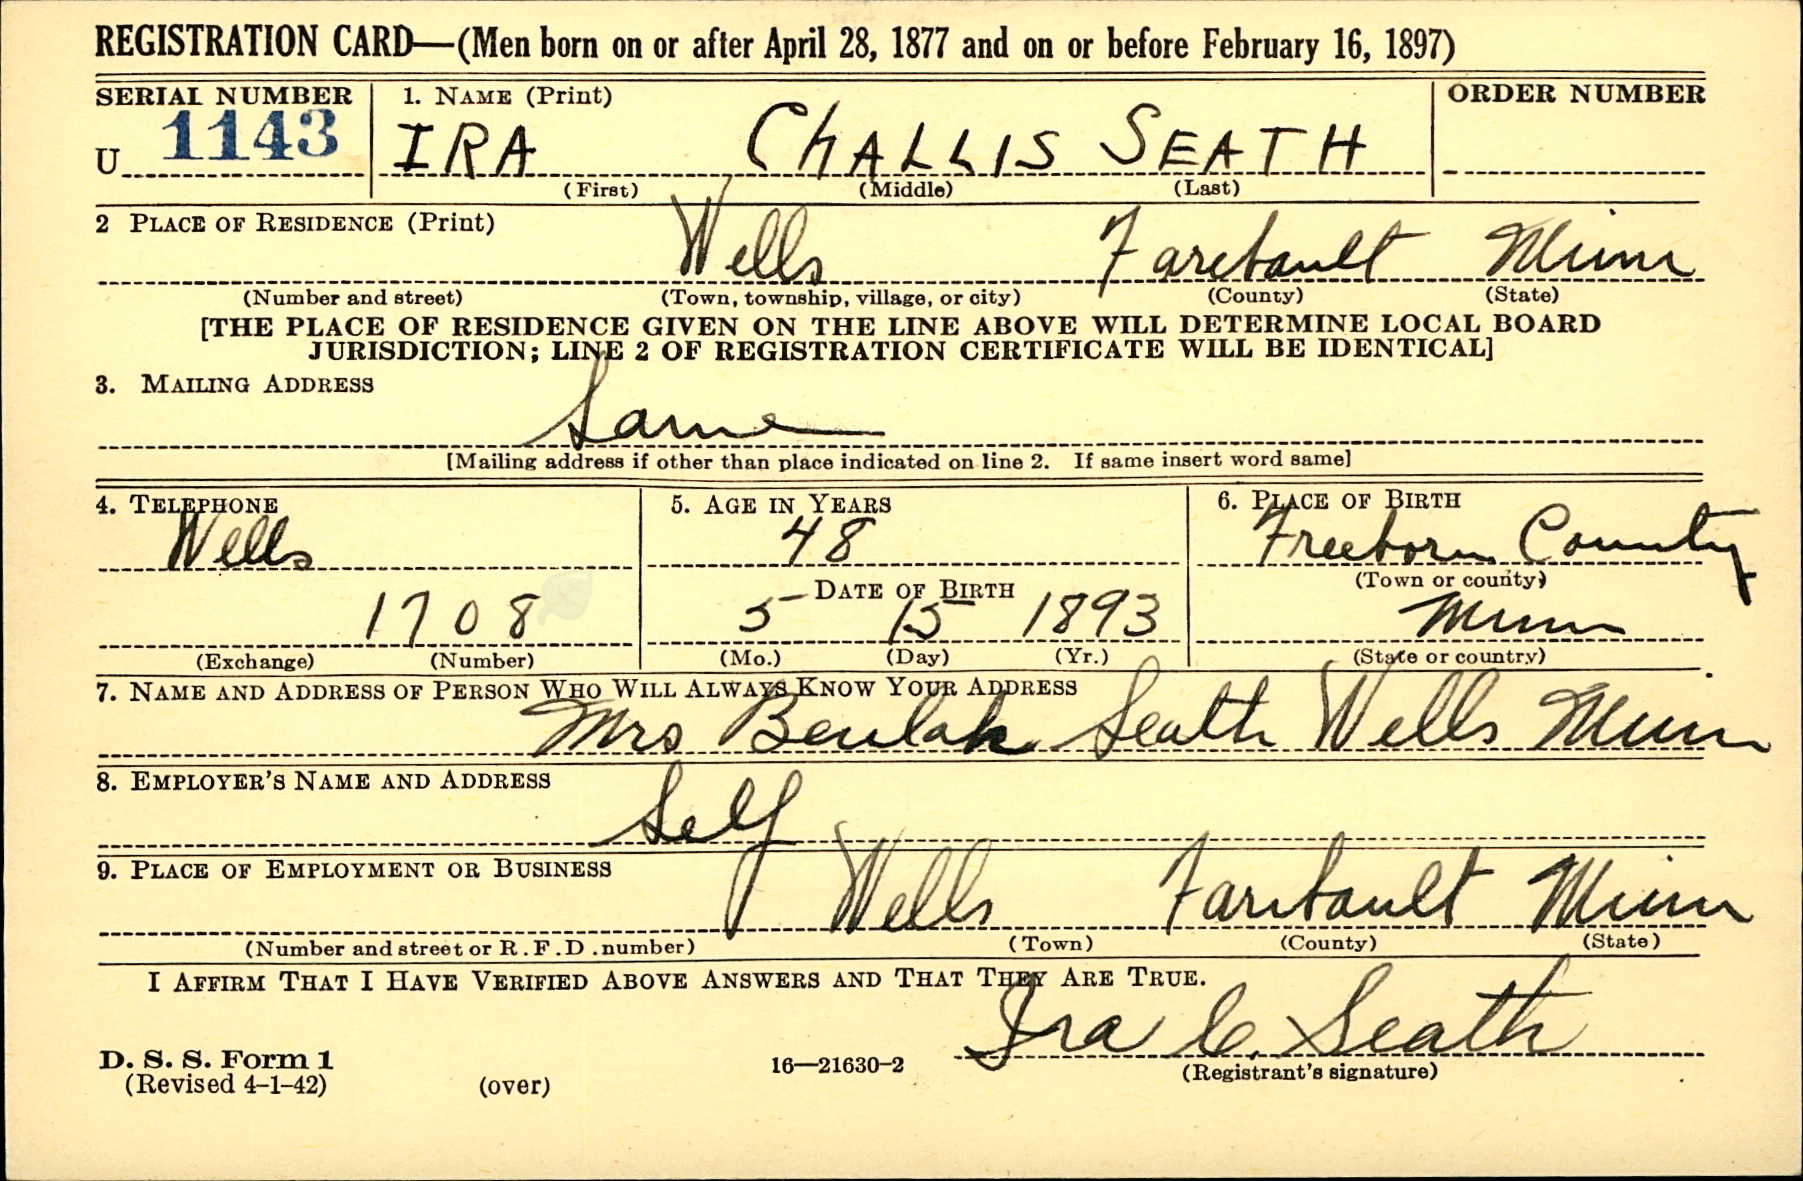 REGISTRATION CARD—(Men born on or after April 28, 1877 and on or before February 16, 1897)
SERIAL NUMBER 1. NAME (Print) ORDER NUMBER
U 1143 IRA CHALLIS SEATH
(First) (Middle) (Last)
2 PLACE OF RESIDENCE (Print)
Wells Farebault Minn
(Number and street) (Town, township, village, or city) (County) (State)
[THE PLACE OF RESIDENCE GIVEN ON THE LINE ABOVE WILL DETERMINE LOCAL BOARD
JURISDICTION; LINE 2 OF REGISTRATION CERTIFICATE WILL BE IDENTICAL]
3. MAILING ADDRESS
Same
[Mailing address if other than place indicated on line 2. If same insert word same]
4. TELEPHONE 5. AGE IN YEARS 6. PLACE OF BIRTH
Wells 48 Freeborn County
DATE OF BIRTH (Town or county)
1708 5 15 1893 Minn
(Exchange) (Number) (Mo.) (Day) (Yr.) (State or country)
7. NAME AND ADDRESS OF PERSON WHO WILL ALWAYS KNOW YOUR ADDRESS
Mrs Beulah Seath Wells Minn
8. EMPLOYER'S NAME AND ADDRESS
Self
9. PLACE OF EMPLOYMENT OR BUSINESS
Wells Faribault Minn
(Number and street or R.F.D. number) (Town) (County) (State)
I AFFIRM THAT I HAVE VERIFIED ABOVE ANSWERS AND THAT THEY ARE TRUE.
Ira C. Seath
D. S. S. Form 1 16—21630-2 (Registrant's signature)
(Revised 4-1-42) (over)